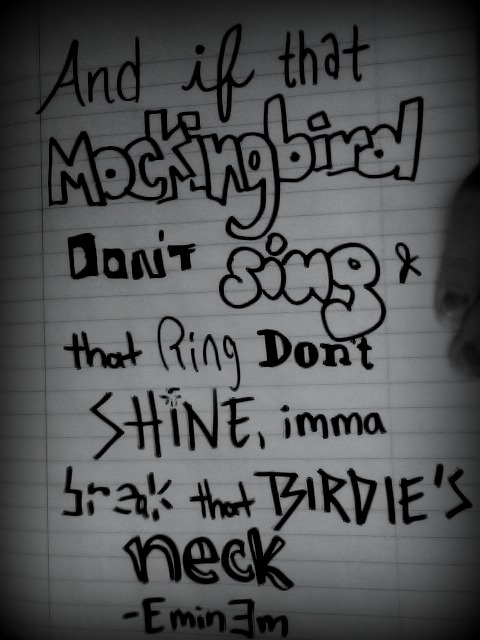 And if that
Mockingbird
Don't sing &
that Ring Don't
SHINE, imma
break that BIRDIE'S
neck
-EminƎm